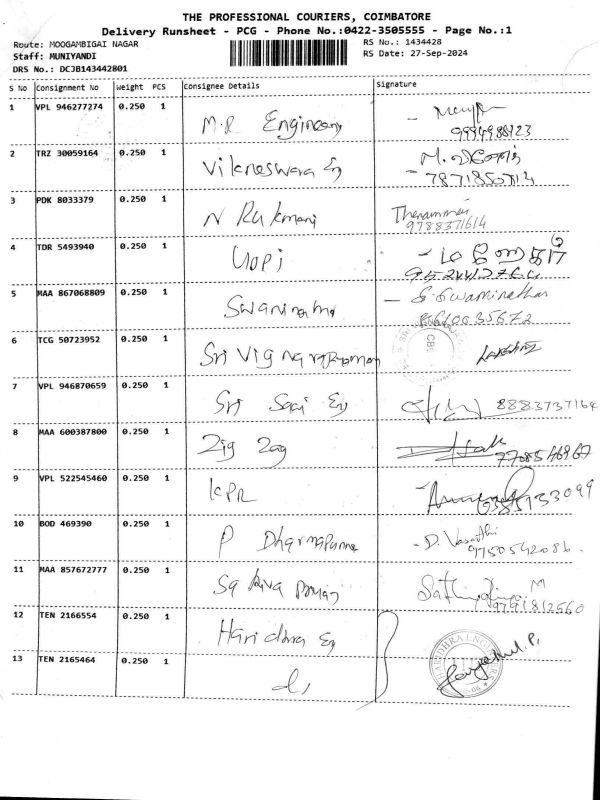 THE PROFESSIONAL COURIERS, COIMBATORE
Delivery Runsheet - PCG - Phone No.:0422-3505555 - Page No.:1
Route: MOOGAMBIGAI NAGAR RS No.: 1434428
Staff: MUNIYANDI RS Date: 27-Sep-2024
DRS No.: DCJB143442801
S No Consignment No Weight PCS Consignee Details Signature
1 VPL 946277274 0.250 1 M.R Engineering
9994988123
2 TRZ 30059164 0.250 1 Vikneswara Eng
7871850714
3 PDK 8033379 0.250 1 N Rukmani
9788371614
4 TDR 5493940 0.250 1 Gopi
5 MAA 867068809 0.250 1 Swaminathan S. Swaminathan
8610035672
6 TCG 50723952 0.250 1 Sri Vignarajaman
7 VPL 946870659 0.250 1 Sri Sai Eng 8883737164
8 MAA 600387800 0.250 1 Zig Zag
7708546967
9 VPL 522545460 0.250 1 KPR
10 BOD 469390 0.250 1 P Dharmapuri D. Vasanthi
9750542086
11 MAA 857672777 0.250 1
9791812560
12 TEN 2166554 0.250 1 Haridhra Eng
13 TEN 2165464 0.250 1